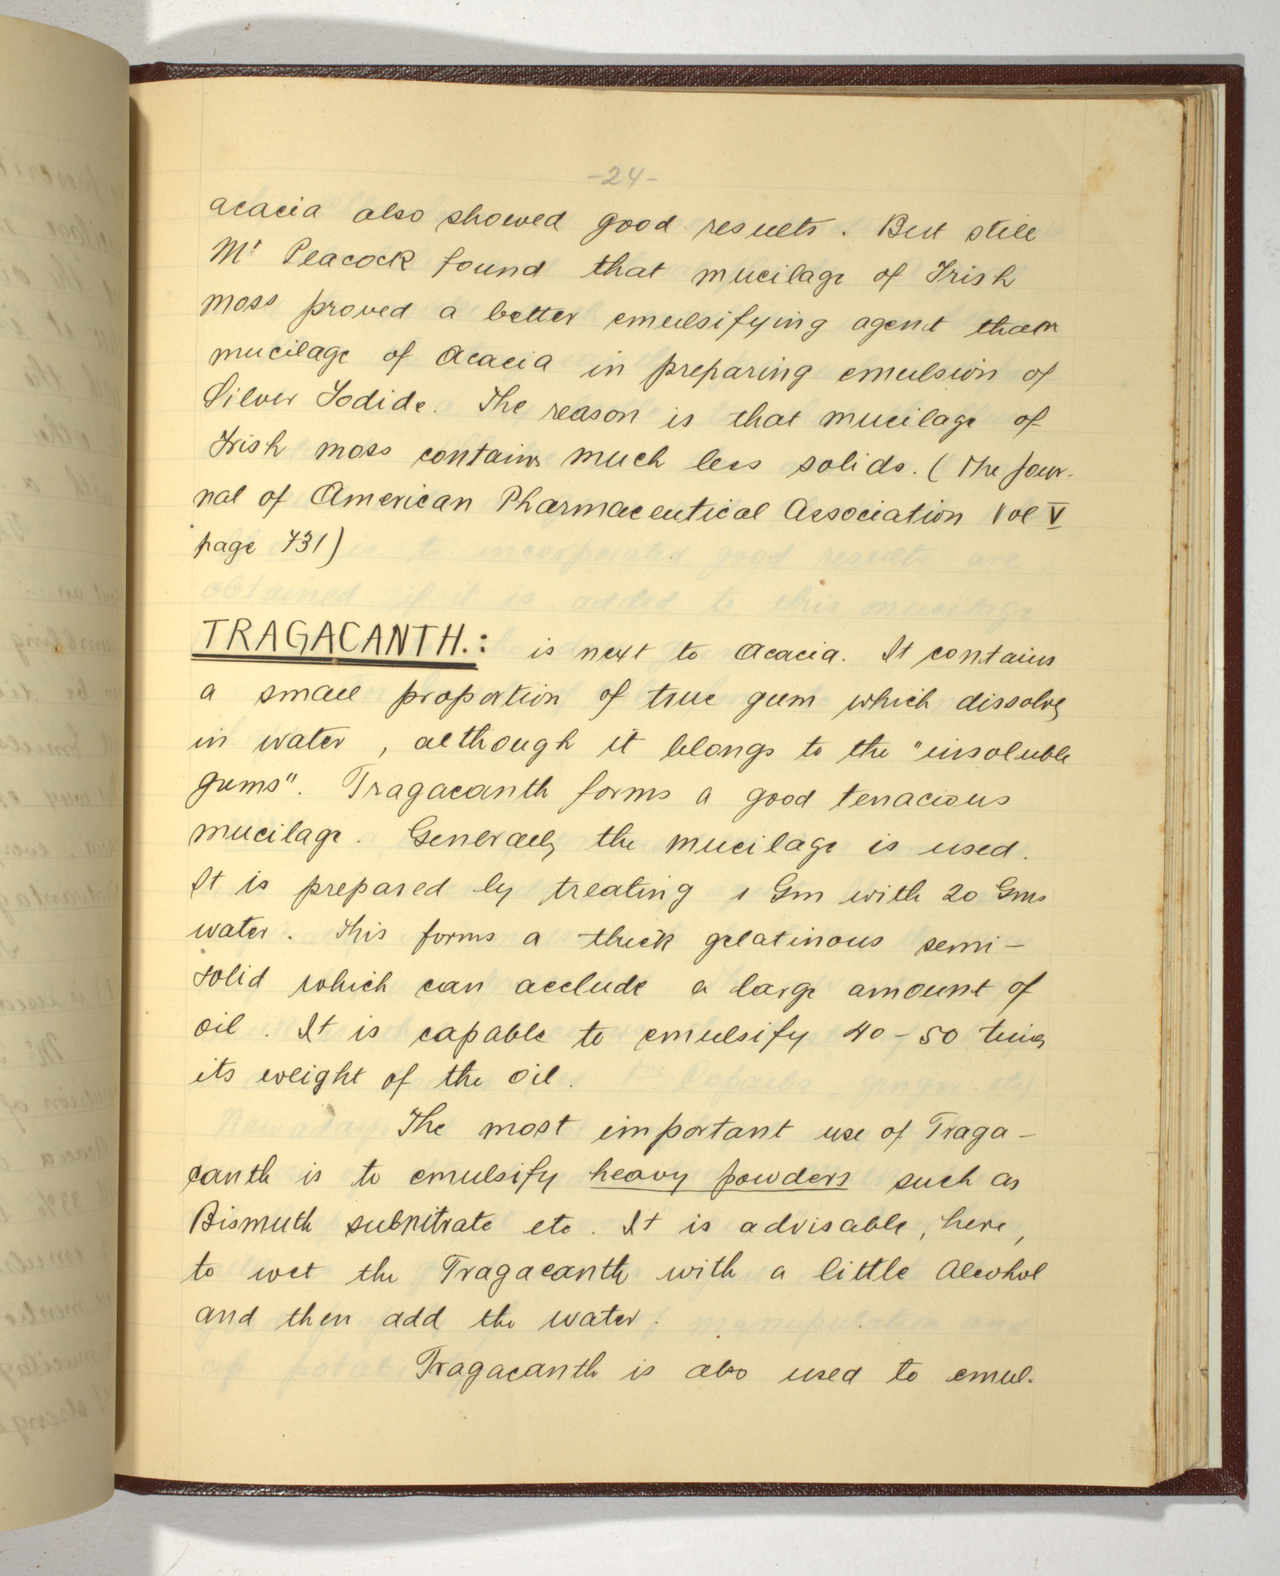 -24-
acacia also showed good results. But still
Mr Peacock found that mucilage of Irish
moss proved a better emulsifying agent than
mucilage of Acacia in preparing emulsion of
Silver Iodide. The reason is that mucilage of
Irish moss contains much less solids. (The Jour-
nal of American Pharmaceutical Association Vol V
page 731)
TRAGACANTH.: is next to Acacia. It contains
a small proportion of true gum which dissolves
in water, although it belongs to the "insoluble
gums". Tragacanth forms a good tenacious
mucilage. Generally the mucilage is used.
It is prepared by treating 1 Gm with 20 Gms
water. This forms a thick gelatinous semi-
solid which can acclude a large amount of
oil. It is capable to emulsify 40-50 times
its weight of the oil.
The most important use of Traga-
canth is to emulsify heavy powders such as
Bismuth subnitrate etc. It is advisable, here,
to wet the Tragacanth with a little Alcohol
and then add the water.
Tragacanth is also used to emul-